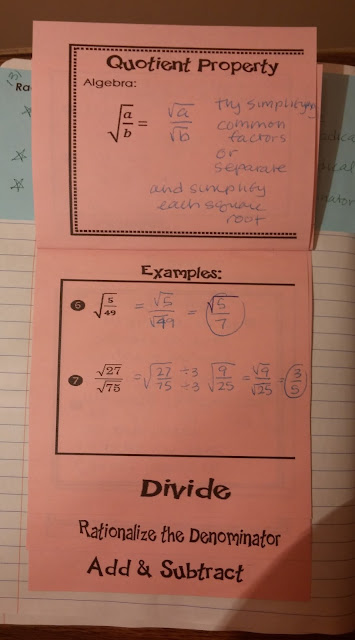 Quotient Property
Algebra:
√(a/b) = √a/√b
Try simplifying
common
factors
or
separate
and simplify
each square
root
Ra
Examples:
6 √(5/49) = √5/√49 = √5/7
7 √27/√75 = √(27/75) ÷3 ÷3 √(9/25) = √9/√25 = 3/5
Divide
Rationalize the Denominator
Add & Subtract